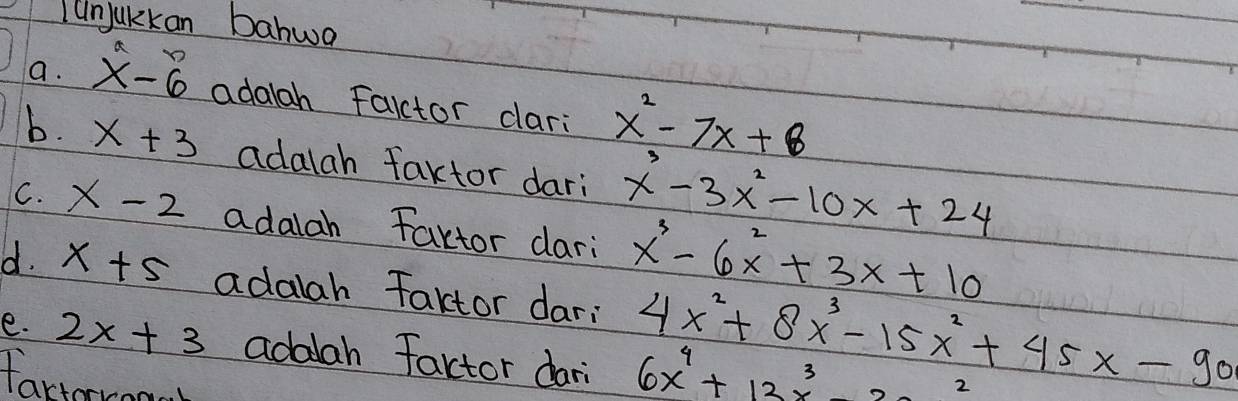 Tunjukkan bahwa
a. x - 6 adalah Faktor dari x² - 7x + 6
b. x + 3 adalah faktor dari x³ - 3x² - 10x + 24
c. x - 2 adalah Faktor dari x³ - 6x² + 3x + 10
d. x + 5 adalah Faktor dari 4x² + 8x³ - 15x² + 45x - 90
e. 2x + 3 adalah faktor dari 6x⁴ + 13x³